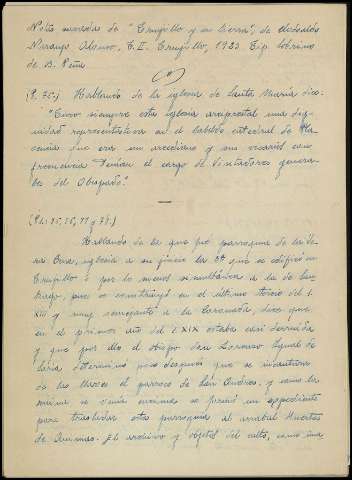 Notas sacadas de "Trujillo y su tierra", de Clodoaldo
Naranjo Alonso, T. II. Trujillo, 1923. Tip. Sobrino
de B. Peña
(P. 75.) Hablando de la iglesia de Santa María dice:
"Tuvo siempre esta iglesia arciprestal una dig-
nidad representativa en el Cabildo catedral de Pla-
sencia que era un arcediano y sus vicarios con
frecuencia tenían el cargo de Visitadores genera-
les del Obispado."
(Ps. 75, 76, 77 y 78.)
Hablando de la que fué parroquia de la Ve-
ra Cruz, iglesia a su juicio la 1ª que se edificó en
Trujillo o por lo menos simultánea a la de San-
tiago, pues se construyó en el último tercio del S.
XIII y muy semejante a la Coronada, dice que
en el primer año del S. XIX estaba casi derruida
y que por ello el obispo don Lorenzo Igual de
Soria determinó poco después que se incautara
de las llaves el párroco de San Andrés, y como la
misma se venía encima se formó un expediente
para trasladar esta parroquia al arrabal Huertas
de Ánimas. El archivo y objetos del culto, como una